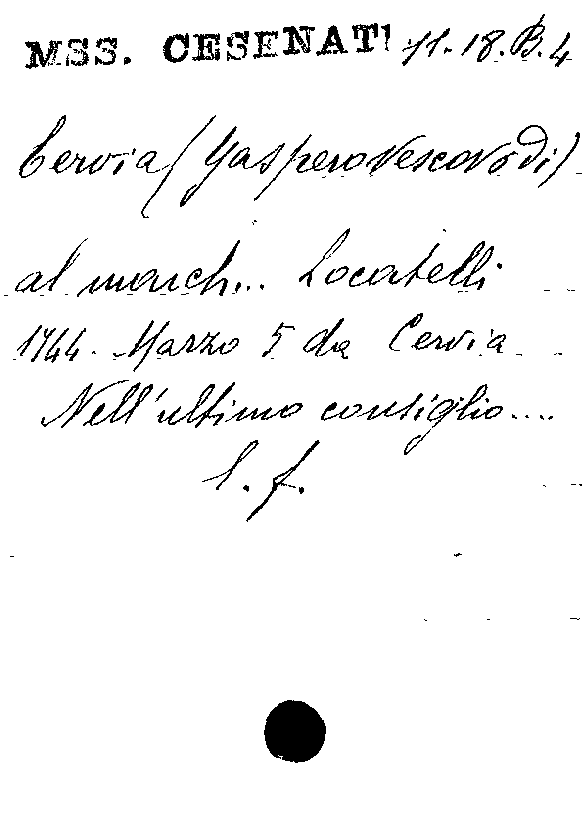 MSS. CESENATI 11-18.B.4
Cervia (Gaspero Vescovo di)
al march... Locatelli
1744. Marzo 5 da Cervia
Nell'ultimo consiglio....
l. f.